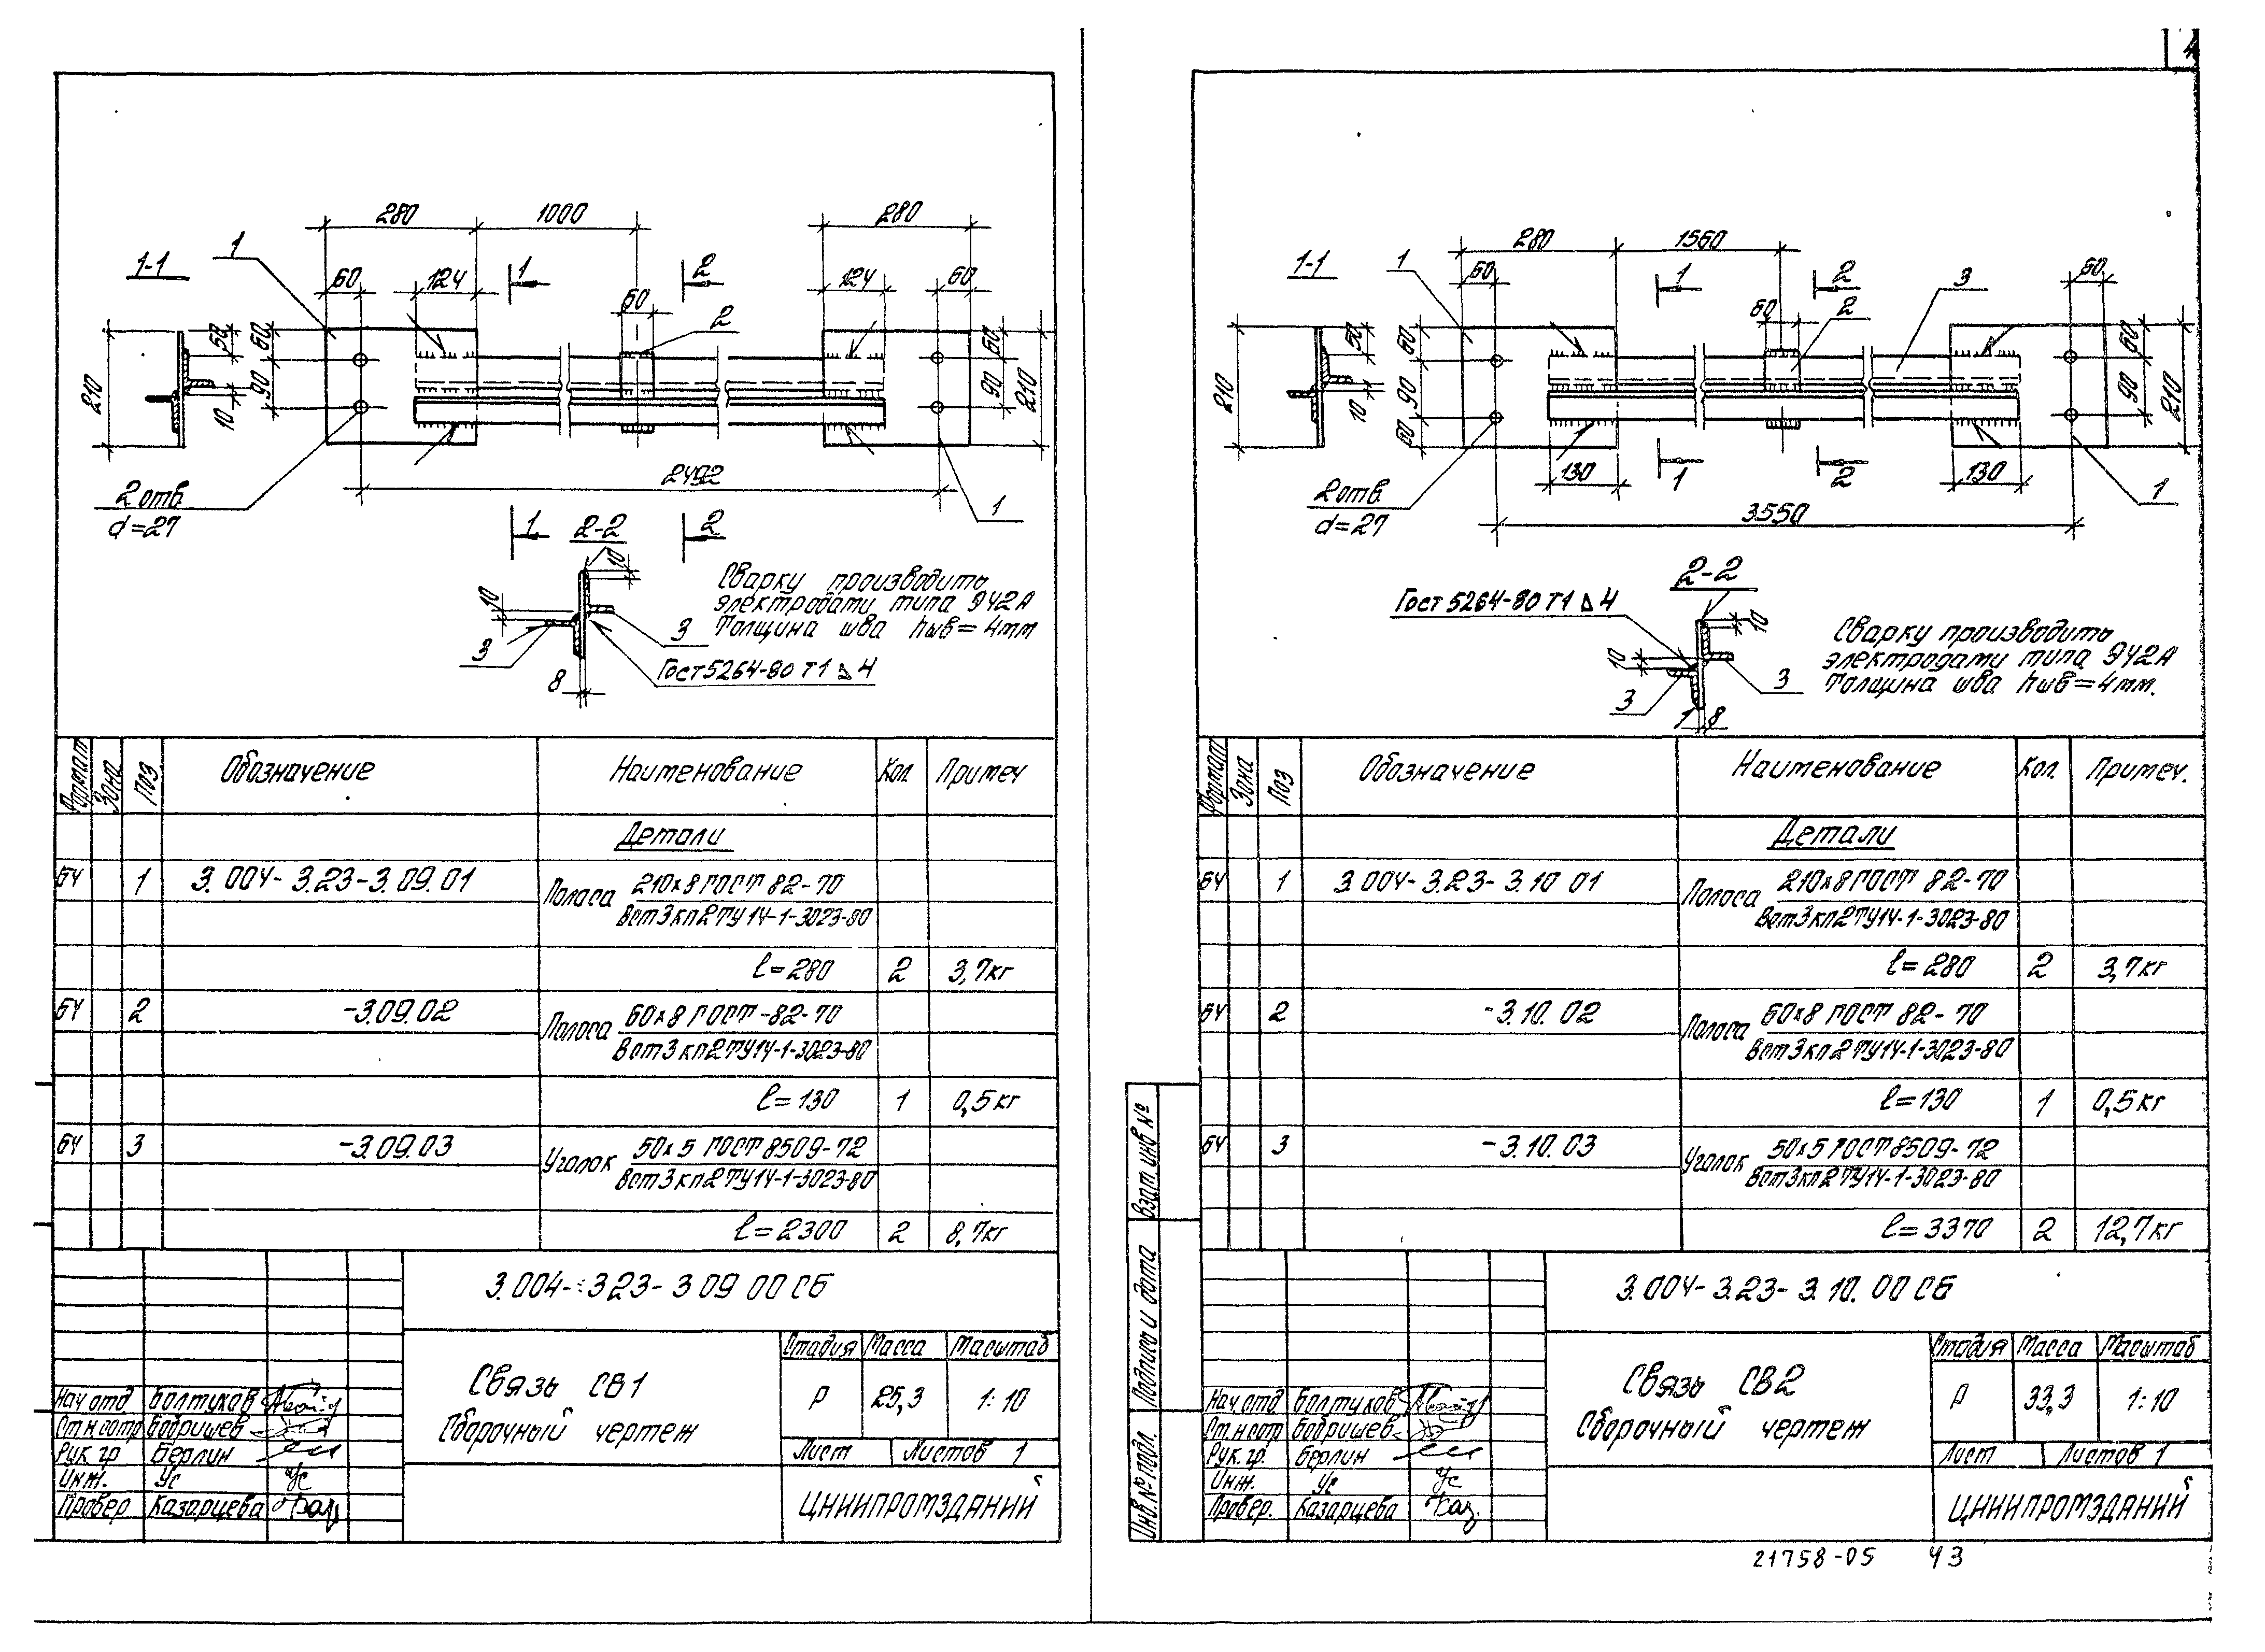 4
280
1000
280
1-1
1
60
124
1
2
60
2
124
60
210
50
10
60
90
60
90
210
2492
2 отв.
d=27
1
1
2
2-2
10
10
3
3
8
Сварку производить
электродами типа Э42А
Толщина шва hшв=4мм
Гост 5264-80 Т1 4
Формат
Зона
Поз
Обозначение
Наименование
Кол.
Примеч
Детали
БЧ 1 3.004-3.23-3.09.01 Полоса 210х8 ГОСТ 82-70
Вст3кп2ТУ14-1-3023-80
l=280 2 3,7кг
БЧ 2 -3.09.02 Полоса 60х8 ГОСТ-82-70
Вст3кп2ТУ14-1-3023-80
l=130 1 0,5кг
БЧ 3 -3.09.03 Уголок 50х5 ГОСТ 8509-72
Вст3кп2ТУ14-1-3023-80
l=2300 2 8,7кг
3.004-3.23-3 09 00 СБ
Связь СВ1
Сборочный чертеж
Стадия Масса Масштаб
Р 25,3 1:10
Лист Листов 1
Нач отд Болтухов
Ст.н.сотр Бобришев
Рук гр Берлин
Инж. Ус
Провер Казарцева
ЦНИИПРОМЗДАНИЙ
280
1560
1-1
1
60
1
2
3
60
2
60
210
50
10
60
90
60
60
90
210
2 отв.
d=27
130
1
2
130
1
3550
2-2
Гост 5264-80 Т1 4
10
10
3
3
8
Сварку производить
электродами типа Э42А
Толщина шва hшв=4мм.
Формат
Зона
Поз
Обозначение
Наименование
Кол.
Примеч.
Детали
БЧ 1 3.004-3.23-3.10 01 Полоса 210х8 ГОСТ 82-70
Вст3кп2ТУ14-1-3023-80
l=280 2 3,7кг
БЧ 2 -3.10.02 Полоса 60х8 ГОСТ 82-70
Вст3кп2ТУ14-1-3023-80
l=130 1 0,5кг
БЧ 3 -3.10.03 Уголок 50х5 ГОСТ 8509-72
Вст3кп2ТУ14-1-3023-80
l=3370 2 12,7кг
3.004-3.23-3.10.00 СБ
Связь СВ2
Сборочный чертеж
Стадия Масса Масштаб
Р 33,3 1:10
Лист Листов 1
Нач.отд Болтухов
Ст.н.сотр Бобришев
Рук.гр. Берлин
Инж. Ус
Провер. Казарцева
ЦНИИПРОМЗДАНИЙ
Взам инв №
Подпись и дата
Инв.№ подл.
21758-05 43